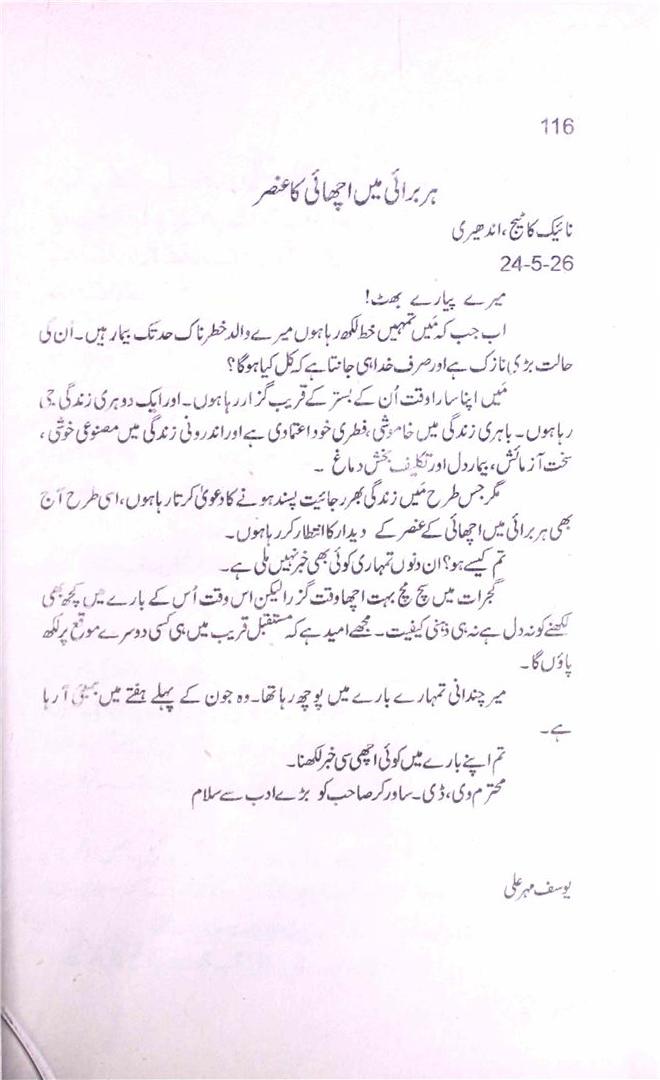 116
ہر برائی میں اچھائی کا عنصر
نائیک کاٹیج، اندھیری
24-5-26
میرے پیارے بھٹ!
اب جب کہ مَیں تمہیں خط لکھ رہا ہوں میرے والد خطرناک حد تک بیمار ہیں۔ اُن کی
حالت بڑی نازک ہے اور صرف خدا ہی جانتا ہے کہ کل کیا ہو گا؟
مَیں اپنا سارا وقت اُن کے بستر کے قریب گزار رہا ہوں۔ اور ایک دوہری زندگی جی
رہا ہوں۔ باہری زندگی میں خاموشی، فطری خود اعتمادی ہے اور اندرونی زندگی میں مصنوعی خوشی،
سخت آزمائش، بیمار دل اور تکلیف بخش دماغ ۔
مگر جس طرح مَیں زندگی بھر رجائیت پسند ہونے کا دعویٰ کرتا رہا ہوں، اسی طرح آج
بھی ہر برائی میں اچھائی کے عنصر کے دیدار کا انتظار کر رہا ہوں۔
تم کیسے ہو؟ ان دنوں تمہاری کوئی بھی خبر نہیں ملی ہے۔
گجرات میں سچ مچ بہت اچھا وقت گزرا لیکن اس وقت اُس کے بارے میں کچھ بھی
لکھنے کو نہ دل ہے نہ ہی ذہنی کیفیت۔ مجھے امید ہے کہ مستقبل قریب میں ہی کسی دوسرے موقع پر لکھ
پاؤں گا۔
میر چندانی تمہارے بارے میں پوچھ رہا تھا۔ وہ جون کے پہلے ہفتے میں بمبئی آ رہا
ہے۔
تم اپنے بارے میں کوئی اچھی سی خبر لکھنا۔
محترم وی، ڈی۔ ساور کر صاحب کو بڑے ادب سے سلام
یوسف مہر علی